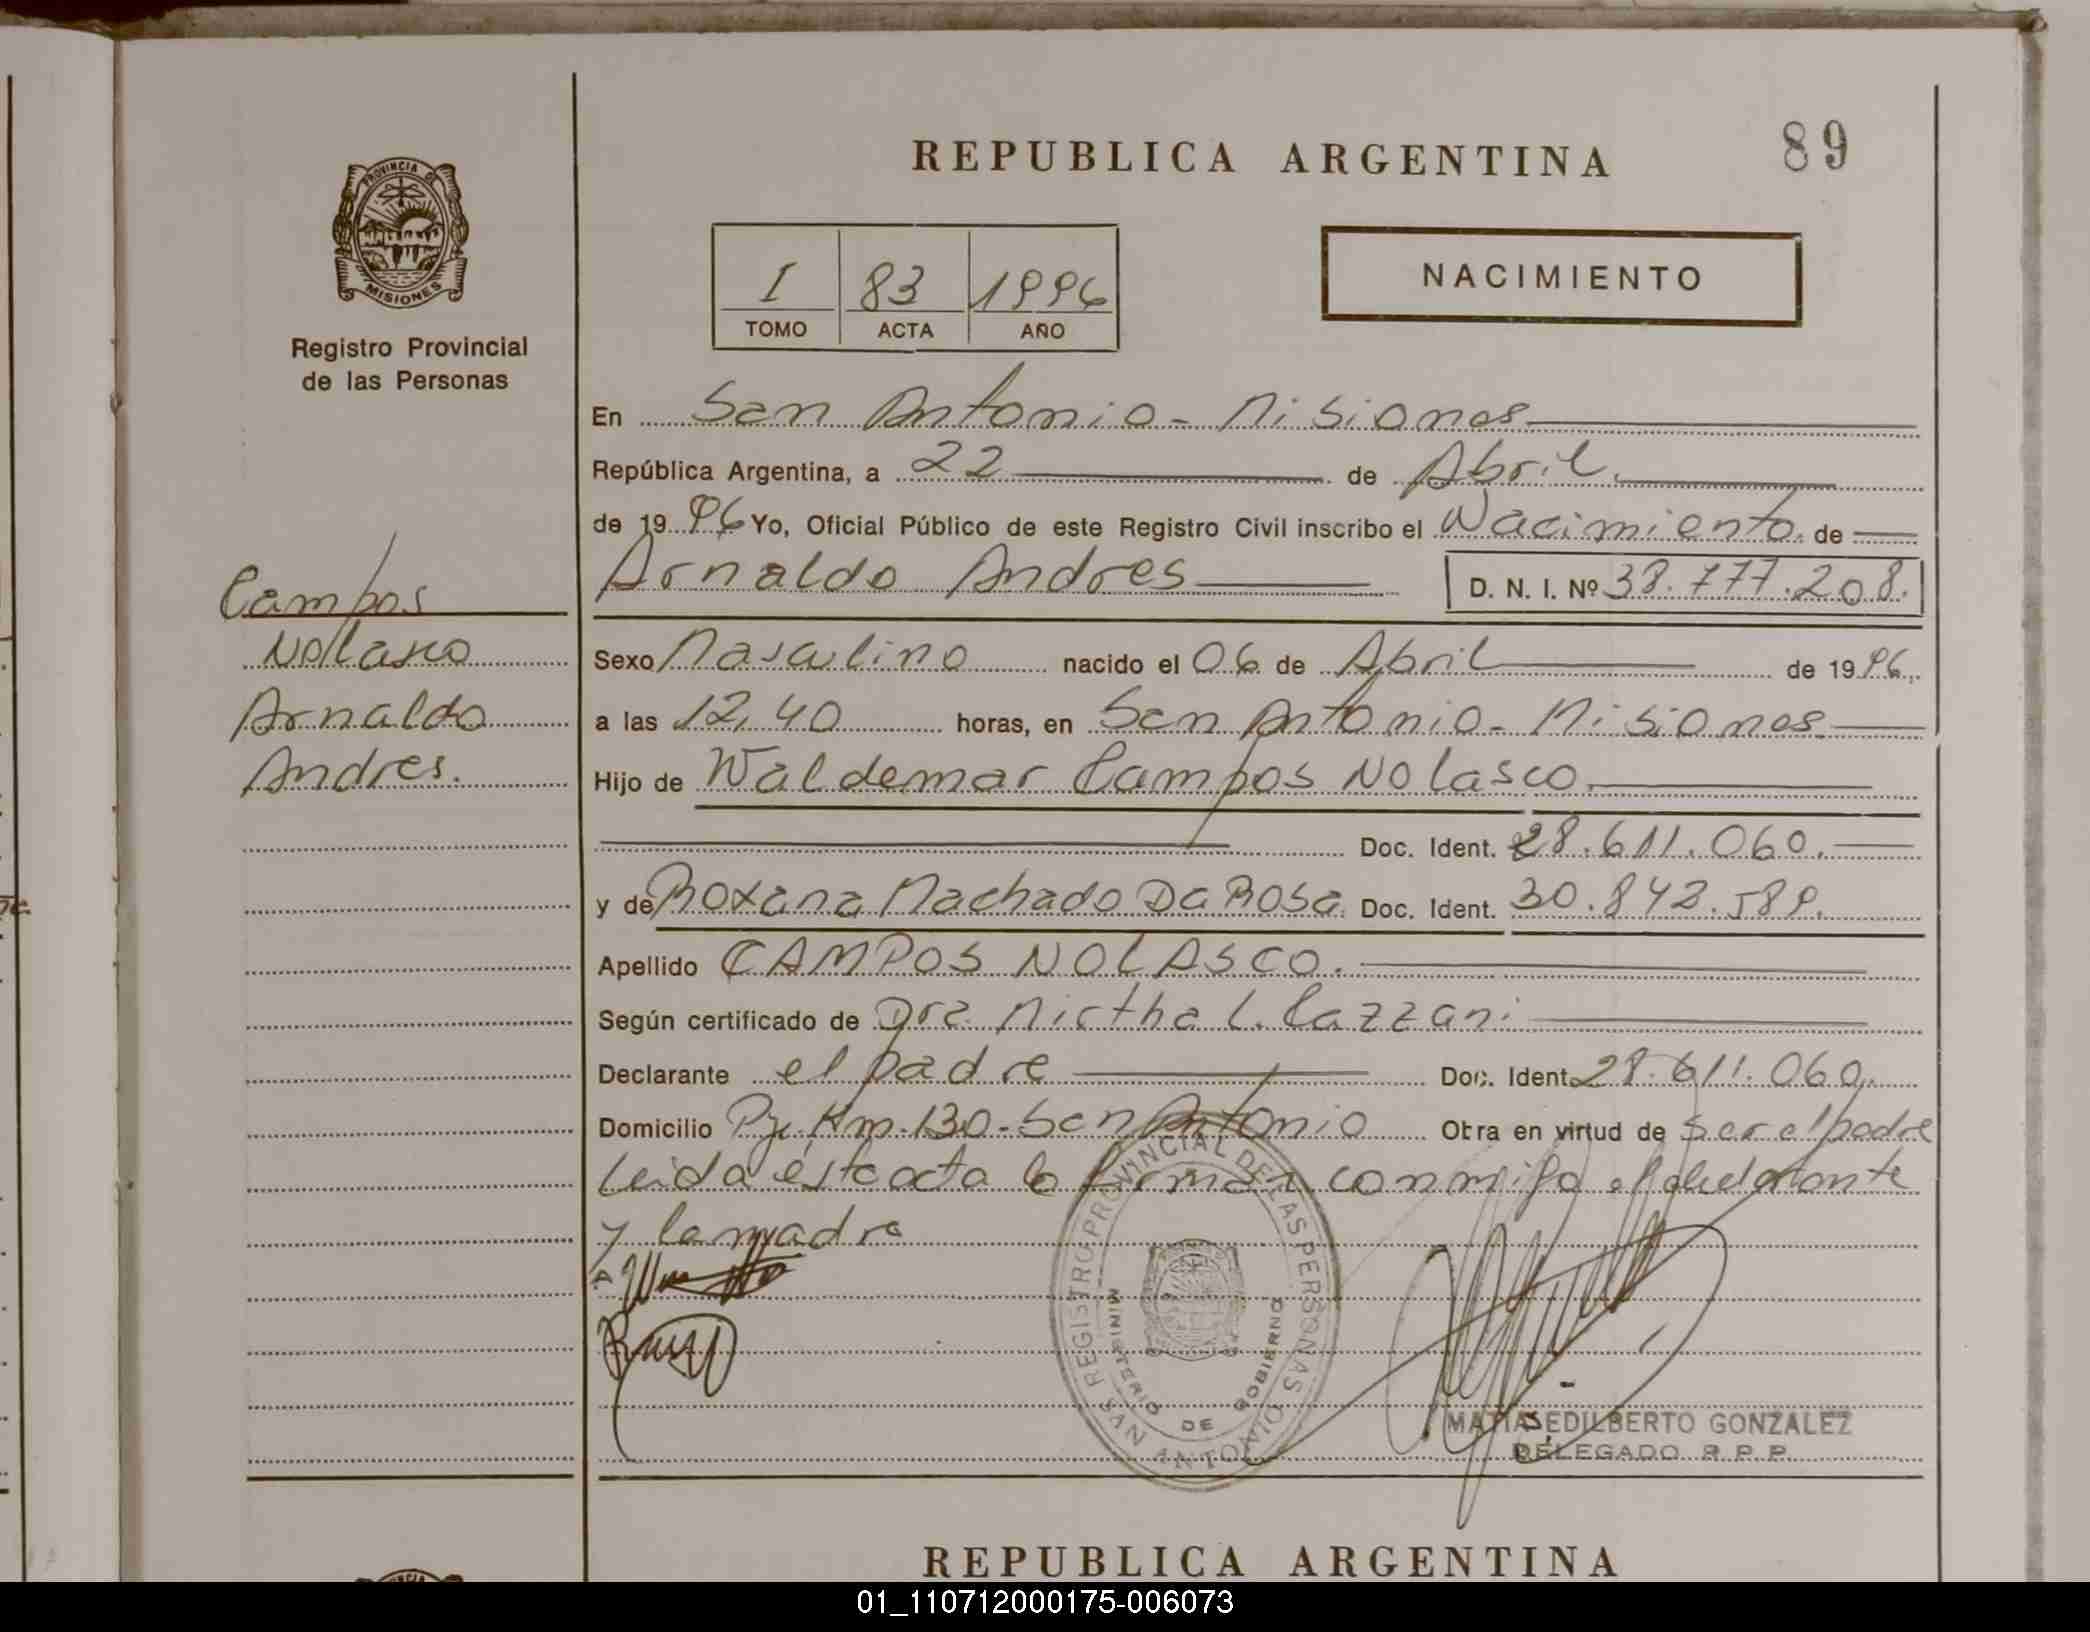 REPUBLICA ARGENTINA 89
PROVINCIA DE
MISIONES
Registro Provincial
de las Personas
I 83 1996
TOMO ACTA AÑO
NACIMIENTO
En San Antonio - Misiones
República Argentina, a 22 de Abril
de 1996 Yo, Oficial Público de este Registro Civil inscribo el Nacimiento de
Arnaldo Andres D. N. I. Nº 38.777.208.
Campos
Nolasco
Arnaldo
Andres.
Sexo Masculino nacido el 06 de Abril de 1996.
a las 12,40 horas, en San Antonio - Misiones
Hijo de Waldemar Campos Nolasco
Doc. Ident. 28.611.060.
y de Roxana Machado Da Rosa Doc. Ident. 30.842.589.
Apellido CAMPOS NOLASCO.
Según certificado de Dra. Mirtha L. Cazzani
Declarante el padre Doc. Ident. 28.611.060.
Domicilio Pje. Km. 130 - San Antonio Otra en virtud de ser el padre
Leida esta acta la firman conmigo el declarante
y la madre
REGISTRO PROVINCIAL DE LAS PERSONAS
MINISTERIO DE GOBIERNO
SAN ANTONIO
MATIAS EDILBERTO GONZALEZ
DELEGADO R. P. P.
REPUBLICA ARGENTINA
01_110712000175-006073